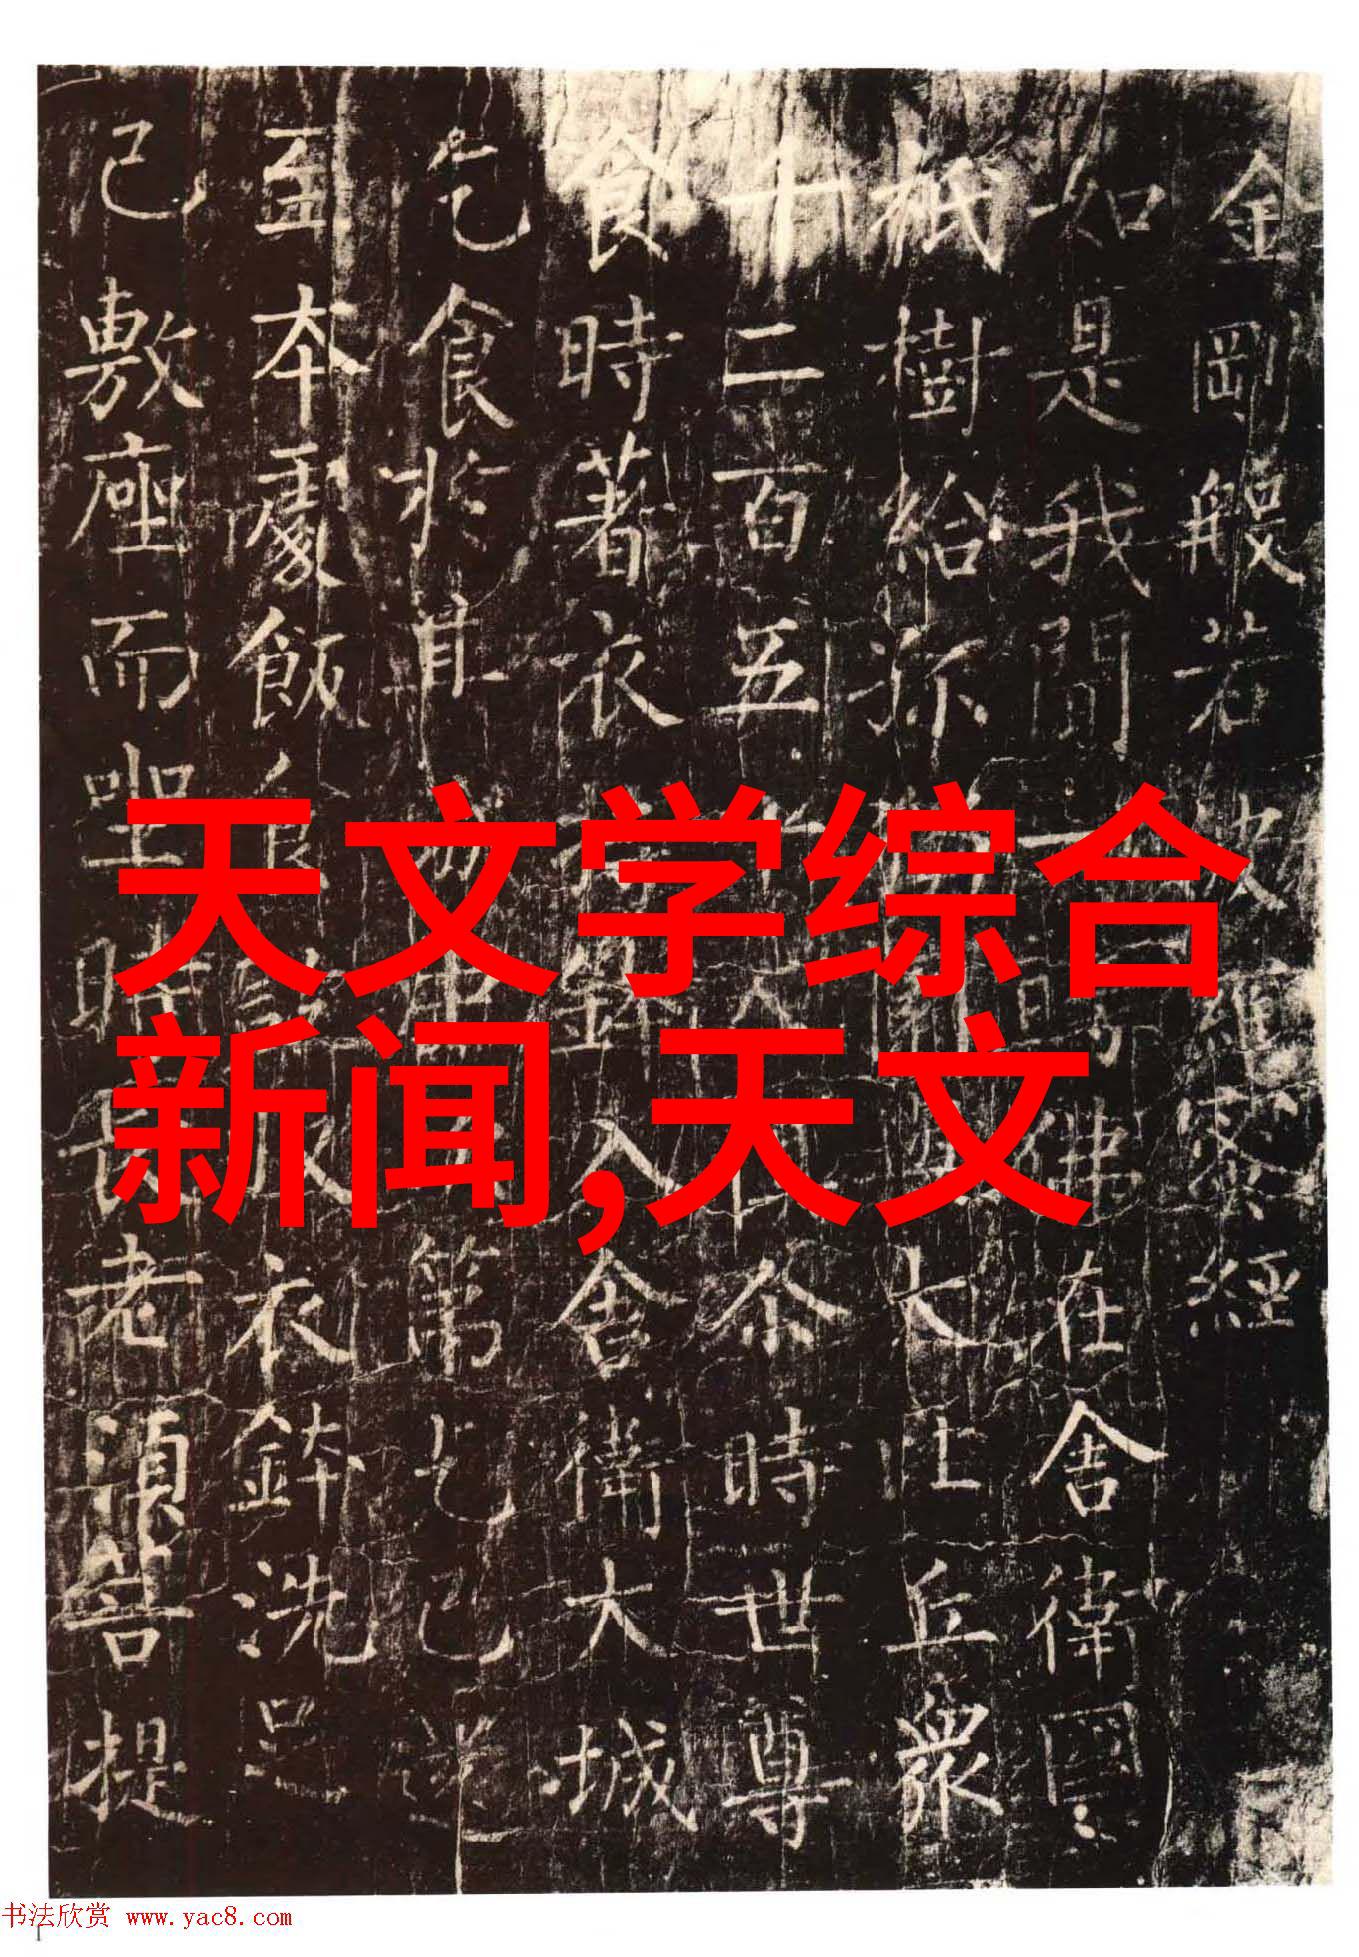 金剛般若波羅蜜經
如是我聞一時佛在舍衛國
祇樹給孤大比丘眾
千二百五十人俱尒時世尊
食時著衣持鉢入舍衛大城
乞食於其城中第乞已還
至本處飯食訖收衣鉢洗足
已敷座而坐時長老須菩提
天文学综合
新闻,天文
书法欣赏 www.yac8.com